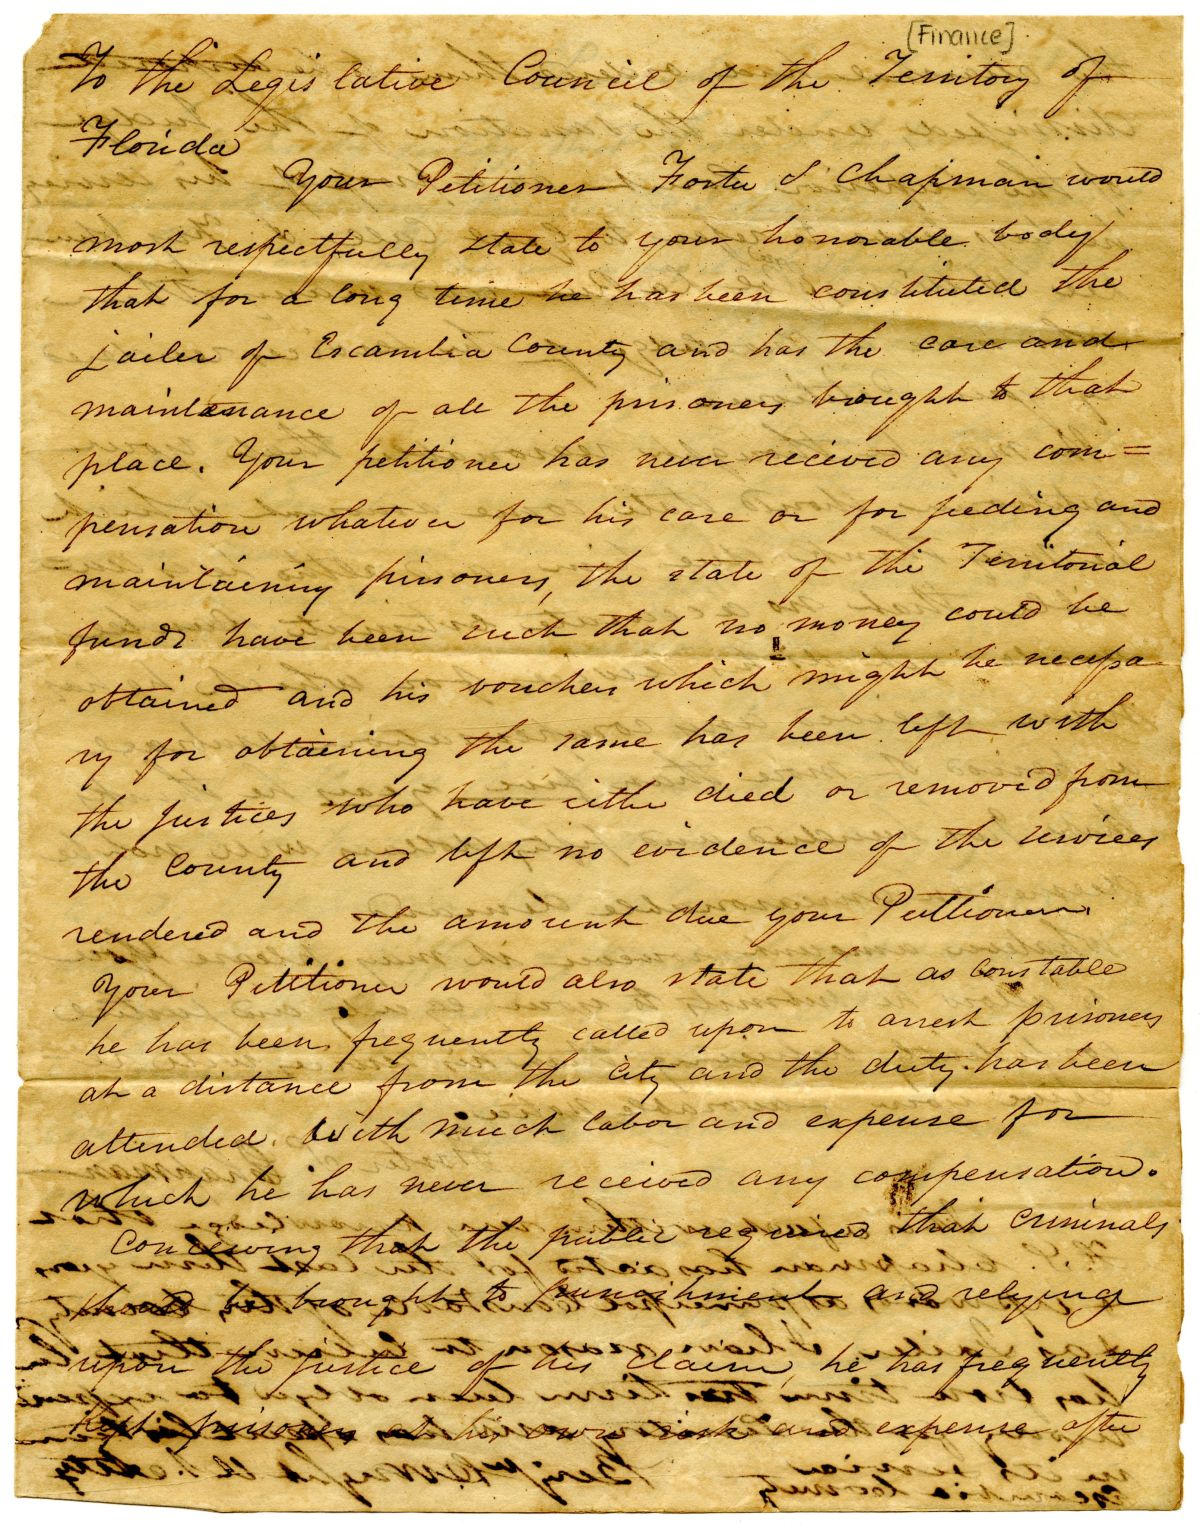 [Finance]
To the Legislative Council of the Territory of
Florida
Your Petitioner Foster S Chapman would
most respectfully state to your honorable body
that for a long time he has been constituted the
jailer of Escambia County and has the care and
maintenance of all the prisoners brought to that
place. Your petitioner has never recieved any com=
pensation whatever for his care or for feeding and
maintaining prisoners, the state of the Territorial
funds have been such that no money could be
obtained and his vouchers which might be necessa
ry for obtaining the same has been left with
the justices who have either died or removed from
the County and left no evidence of the services
rendered and the amount due your Petitioner.
Your Petitioner would also state that as Constable
he has been frequently called upon to arrest prisoners
at a distance from the City and the duty has been
attended with much labor and expense for
which he has never received any compensation.
Conceiving that the public required that criminals
should be brought to punishment and relying
upon the justice of his claim, he has frequently
kept prisoners at his own risk and expense after